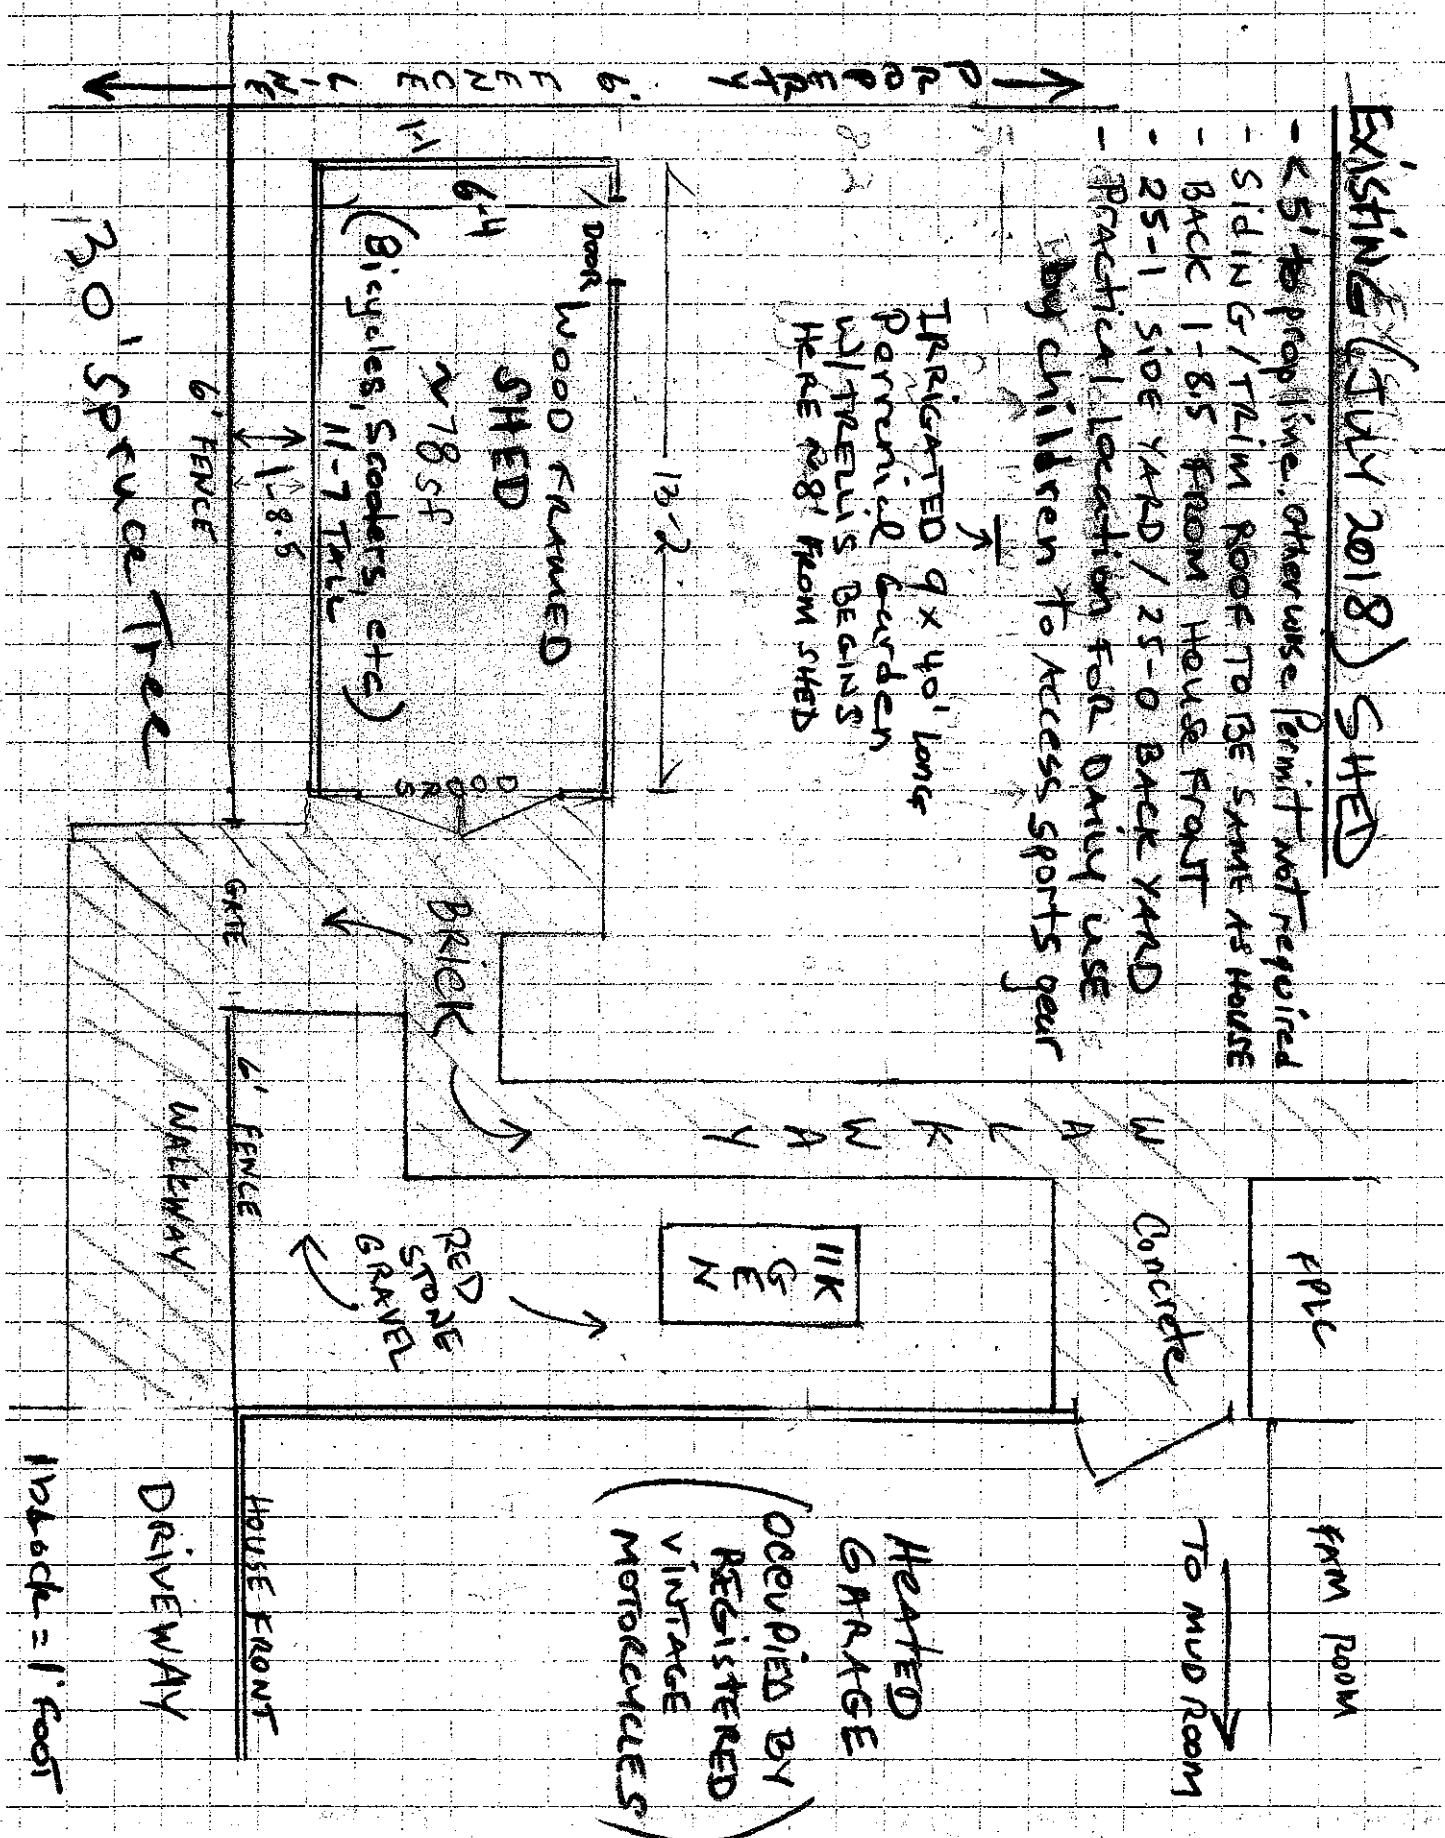 EXISTING (JULY 2018) SHED
- < 5' to prop line. Otherwise Permit not required
- SIDING/TRIM ROOF TO BE SAME AS HOUSE
- BACK 1-8.5 FROM HOUSE FRONT
- 25-1 SIDE YARD / 25-0 BACK YARD
- PRACTICAL Location FOR DAILY USE
by children To Access SPORTS gear
IRRIGATED 9 x 40' long
Perrenial Garden
W/TRELLIS BEGINS
HERE ~8' FROM SHED
PROPERTY LINE
6' FENCE
13-2
1-1
6-4
DOOR
WOOD FRAMED
SHED
~78 Sf
(Bicycles, Scooters, etc)
11-7 TALL
DOORS
1-8.5
6' FENCE
30' Spruce Tree
GATE
BRICK
6' FENCE
WALKWAY
WALKWAY
RED
STONE
GRAVEL
11K
GEN
Concrete
FPLC
FAM ROOM
TO MUD ROOM
HEATED
GARAGE
(OCCUPIED BY
REGISTERED
VINTAGE
MOTORCYCLES)
HOUSE FRONT
DRIVEWAY
1 block = 1 foot